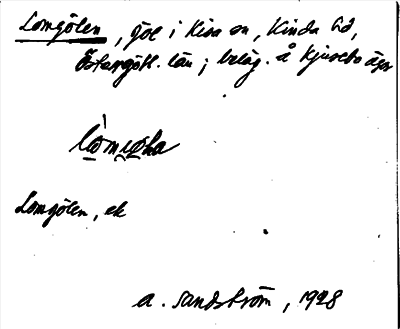 Lomgölen, göl i Kisa sn, Kinda hd,
Östergötl. län; beläg. å Kjusebo ägor
Lomgölen, ek
A. Sandström, 1928